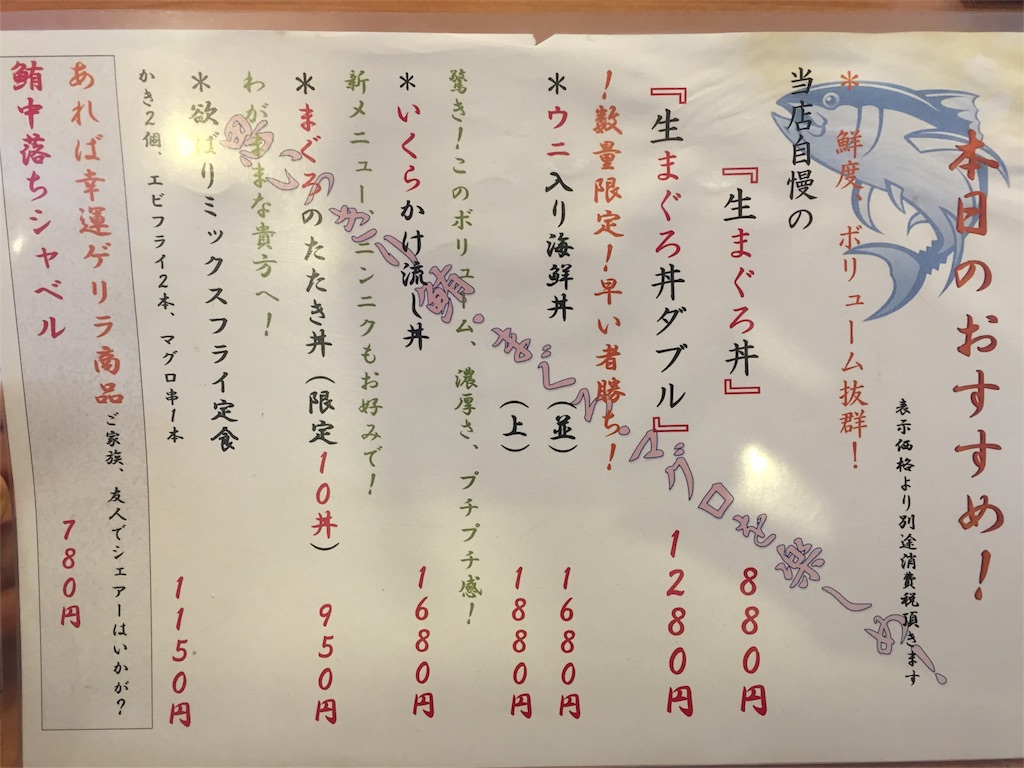 本日のおすすめ!
表示価格より別途消費税頂きます
*鮮度、ボリューム抜群!
当店自慢の
『生まぐろ丼』 880円
『生まぐろ丼ダブル』 1280円
!数量限定!早い者勝ち!
*ウニ入り海鮮丼(並) 1680円
(上) 1880円
驚き!このボリューム、濃厚さ、プチプチ感!
*いくらかけ流し丼 1680円
新メニュー!ニンニクもお好みで!
*まぐろのたたき丼(限定10丼) 950円
わがままな貴方へ!
*欲ばりミックスフライ定食 1150円
かき2個、エビフライ2本、マグロ串1本
あれば幸運ゲリラ商品
ご家族、友人でシェアーはいかが?
鮪中落ちシャベル 780円
思いっきり鮪・まぐろ・マグロを楽しめ!